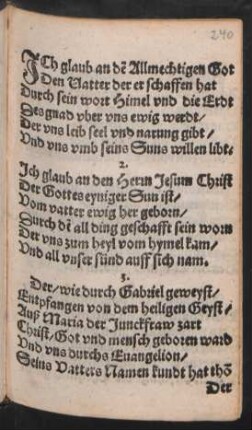 240
ICh glaub an dē Allmechtigen Got
Den Vatter der erschaffen hat
Durch sein wort Himel vnd die Erdt
Des gnad vber vns ewig werdt/
Der vns leib seel vnd narung gibt/
Vnd vns vmb seins Suns willen libt.
2.
Ich glaub an den Herrn Jesum Christ
Der Gottes eyniger Sun ist/
Vom vatter ewig her geborn/
Durch dē all ding geschafft sein worn
Der vns zum heyl vom hymel kam/
Vnd all vnser sünd auff sich nam.
3.
Der/wie durch Gabriel geweyst/
Entpfangen von dem heiligen Geyst/
Auß Maria der Junckfraw zart
Christ/Got vnd mensch geboren ward
Vnd vns durchs Euangelion/
Seins Vatters Namen kundt hat thō
Der